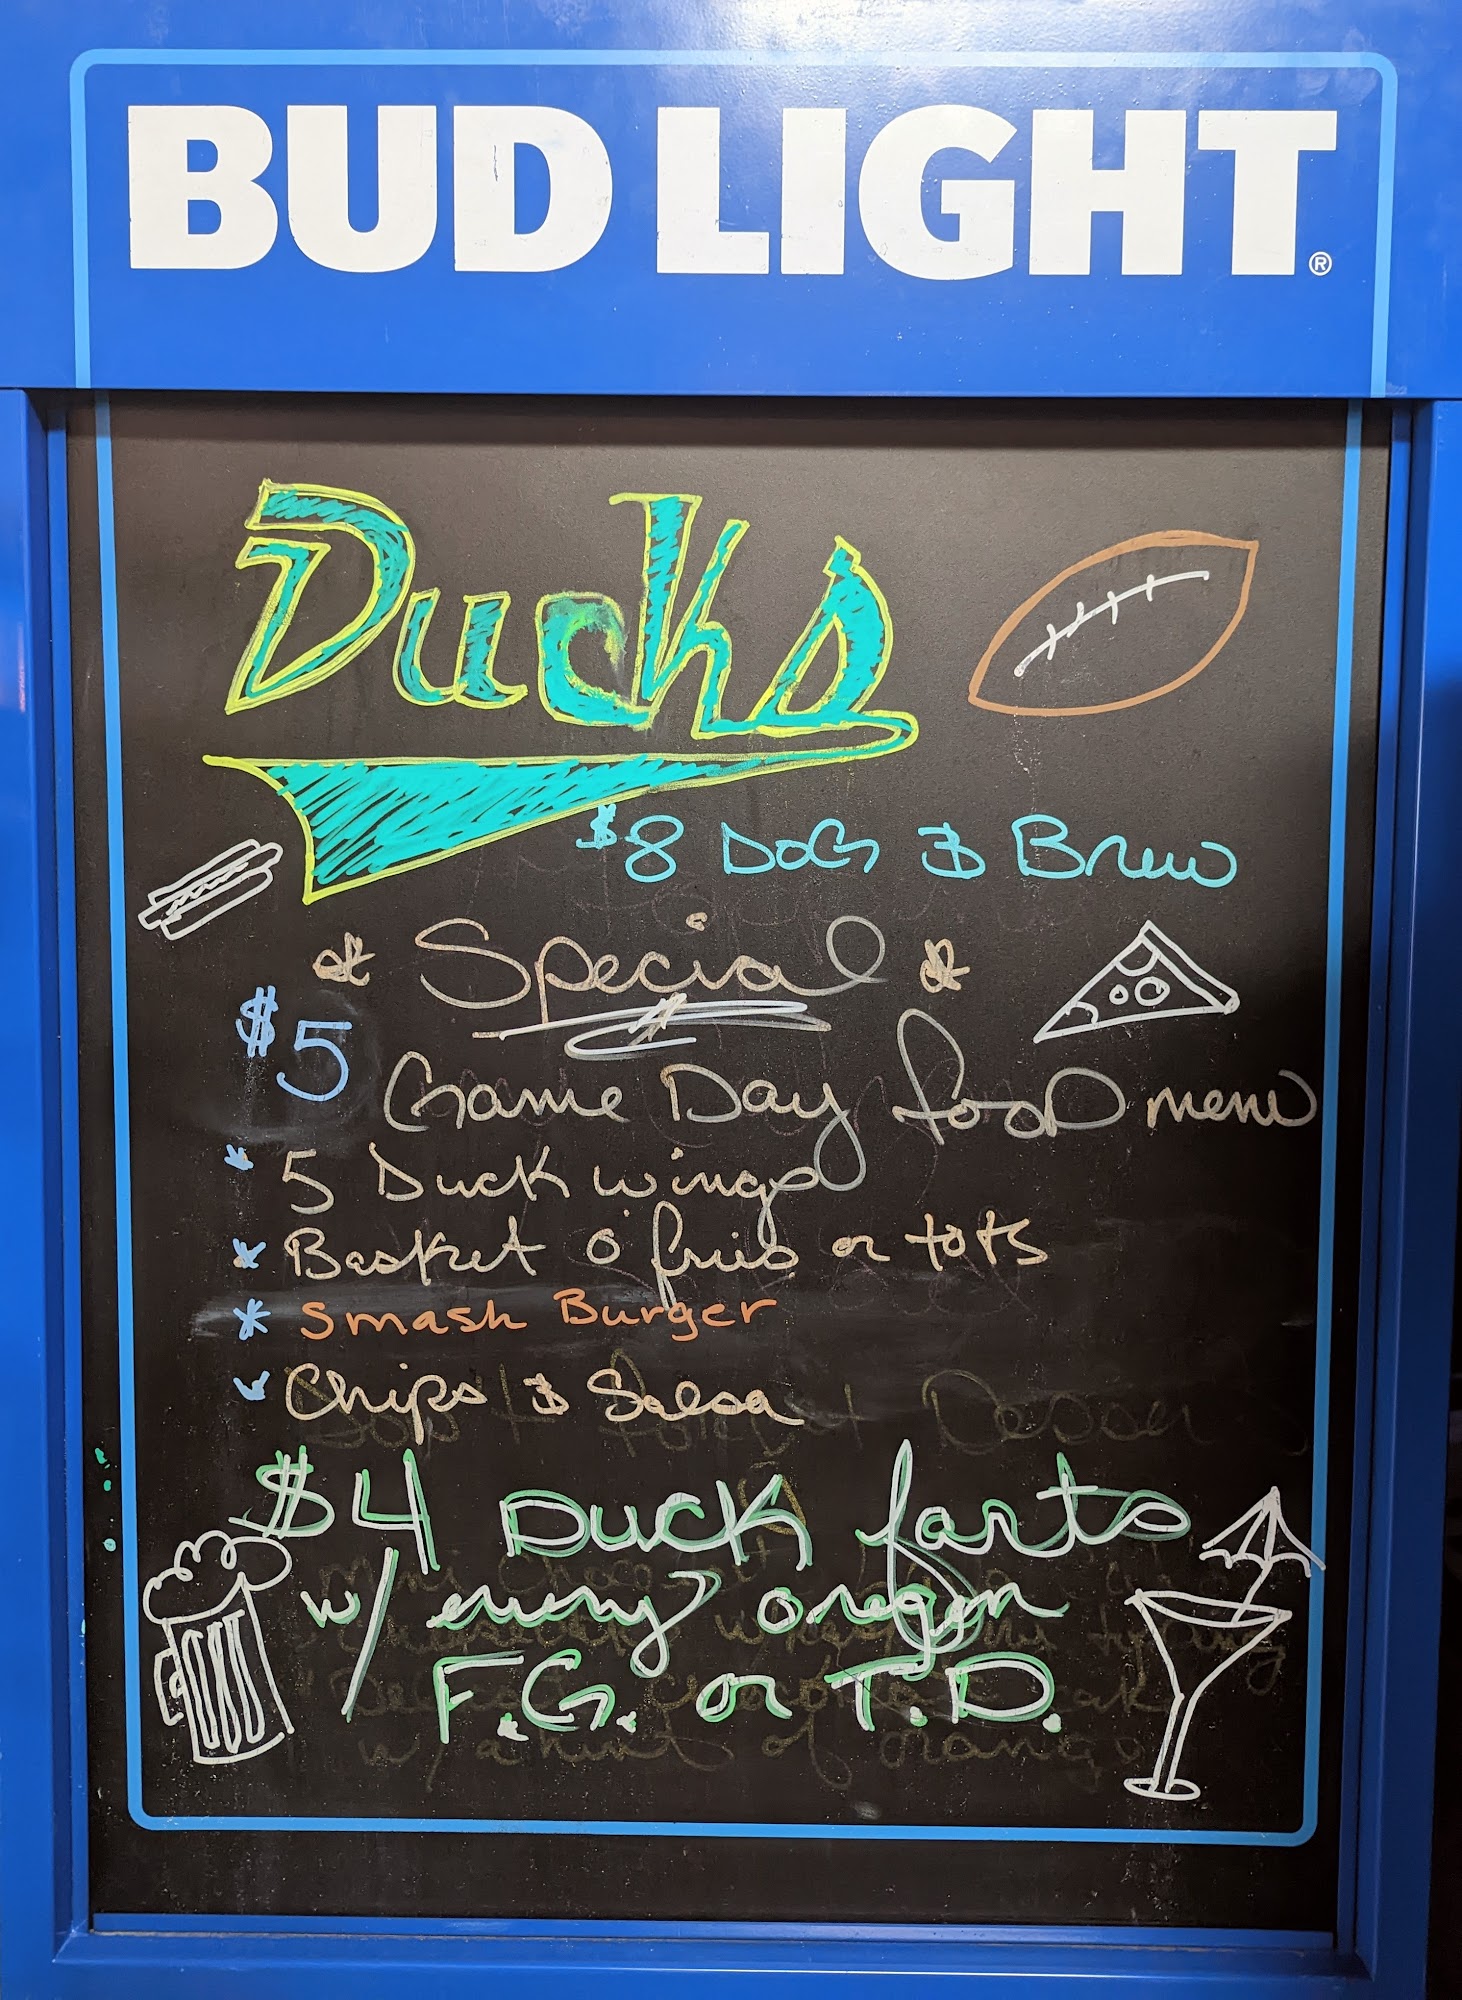 BUD LIGHT®
Ducks
$8 DOG & Brew
* Special *
$5 Game Day food menu
* 5 Duck wings
* Basket o' fries or tots
* Smash Burger
* Chips & Salsa
$4 Duck farts
w/ every oregon
F.G. or T.D.